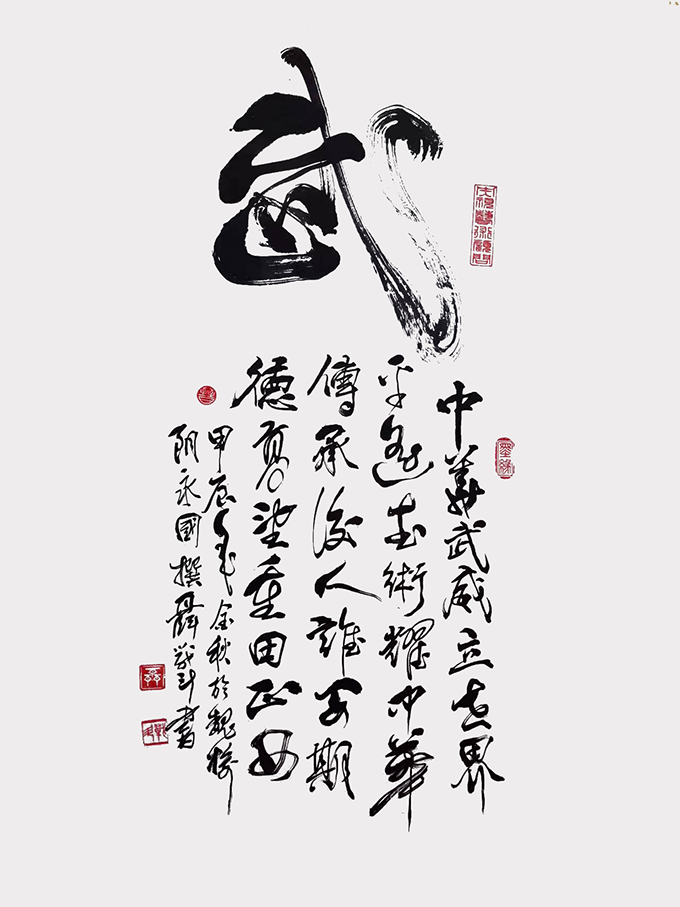 武
中華武威立世界
平遙武術耀中華
傳承後人誰期
德高望重田正安
甲辰年金秋於魏橋
阴永國撰聶战斗書
墨緣